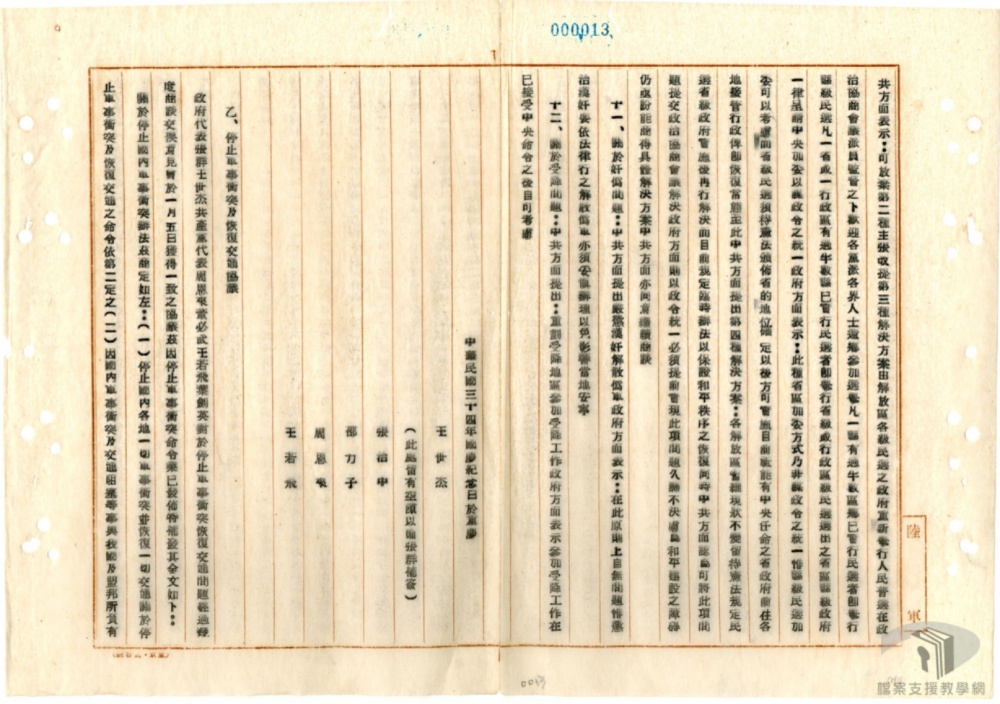 000013
共方面表示：可放棄第二種主張改提第三種解決方案由解放區各級民選之政府重新舉行人民普選在政
治協商會議派員監督之下歡迎各黨派各界人士還鄉參加選舉凡一縣有過半數區鄉已實行民選者即舉行
縣級民選凡一省或一行政區有過半數縣已實行民選者即舉行省級或行政區級民選選出之省區縣級政府
一律呈請中央加委以謀政令之統一政府方面表示：此種省區加委方式乃非謀政令之統一惟縣級民選加
委可以考慮而省級民選須待憲法頒佈省的地位確定以後方可實施目前祇能有中央任命之省政府前往各
地接管行政俾即恢復常態至此中共方面提出第四種解決方案：各解放區暫維現狀不變留待憲法規定民
選省級政府實施後再行解決而目前規定臨時辦法以保證和平秩序之恢復同時中共方面認為可將此項問
題提交政治協商會議解決政府方面則以政令統一必須提前實現此項問題久懸不決慮為和平建設之障碍
仍亟盼能商得具體解決方案中共方面亦同意繼續商談
十一、關於奸偽問題：中共方面提出嚴懲漢奸解散偽軍政府方面表示：在此原則上自無問題惟懲
治漢奸要依法律行之解散偽軍亦須妥慎辦理以免影響當地安寧
十二、關於受降問題：中共方面提出：重劃受降地區參加受降工作政府方面表示參加受降工作在
已接受中央命令之後自可考慮
中華民國三十四年國慶紀念日於重慶
王世杰
（此處留有空額以備張群補簽）
張治中
邵力子
周恩來
王若飛
乙、停止軍事衝突及恢復交通協議
政府代表張群王世杰共產黨代表周恩來董必武王若飛葉劍英對於停止軍事衝突恢復交通問題經過幾
度商談交換意見曾於一月五日獲得一致之協議茲因停止軍事衝突命令業已發佈特補發其全文如下：
關於停止國內軍事衝突辦法茲商定如左：（一）停止國內各地一切軍事衝突並恢復一切交通關於停
止軍事衝突及恢復交通之命令依第二定之（二）因國內軍事衝突及交通阻塞等事與我國及盟邦所負有
陸軍
檔案支援教學網